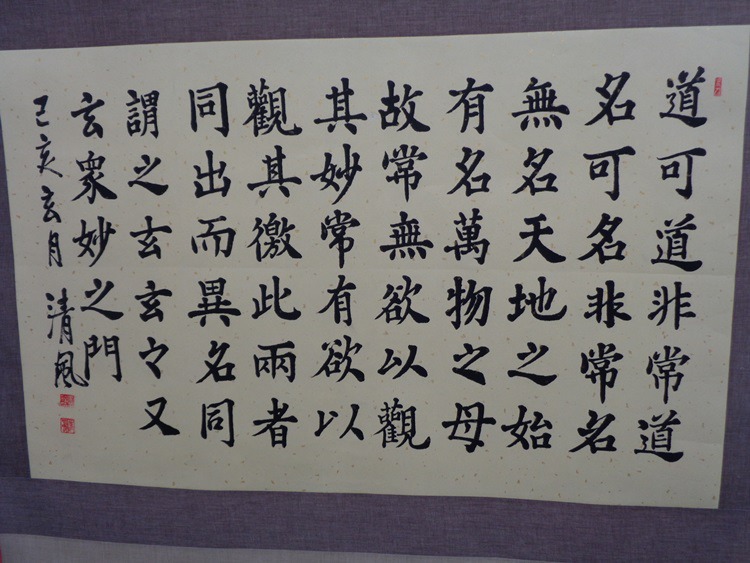 道可道非常道
名可名非常名
無名天地之始
有名萬物之母
故常無欲以觀
其妙常有欲以
觀其徼此兩者
同出而異名同
謂之玄玄之又
玄眾妙之門
己亥玄月 清風